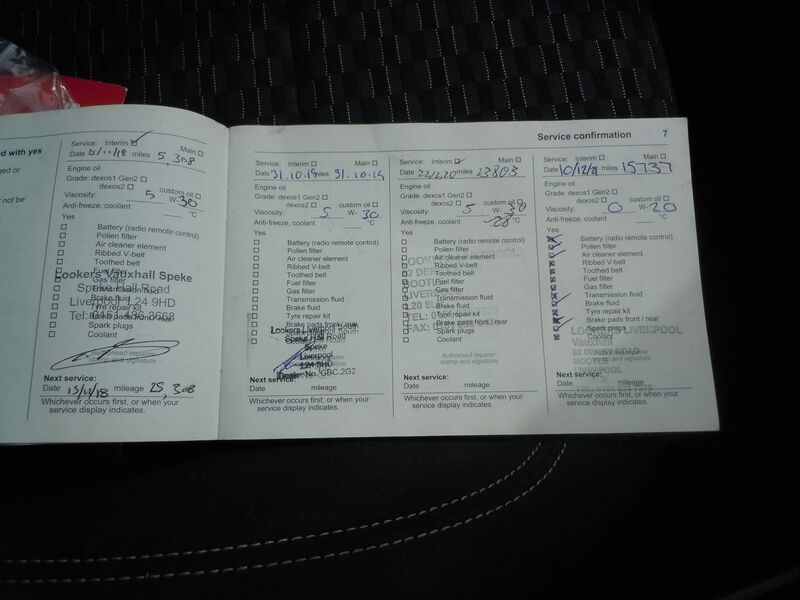 ed with yes
ged or
y not be
Service: Interim ☐ Main ☐
Date 15/11/18 miles 5,308
Engine oil
Grade: dexos1 Gen2 ☐
dexos2 ☐ custom oil ☐
Viscosity: 5 W-30
Anti-freeze, coolant °C
Yes
Battery (radio remote control)
Pollen filter
Air cleaner element
Ribbed V-belt
Toothed belt
Fuel filter
Gas filter
Transmission fluid
Brake fluid
Tyre repair kit
Brake pads front / rear
Spark plugs
Coolant
Lookers Vauxhall Speke
Speke Hall Road
Liverpool L24 9HD
Tel: 0151 486 3668
Authorised repairer
stamp and signature
Next service:
Date 15/11/18 mileage 25,308
Whichever occurs first, or when your
service display indicates.
Service confirmation 7
Service: Interim ☐ Main ☐
Date 31.10.19 miles 31.10.19
Engine oil
Grade: dexos1 Gen2 ☐
dexos2 ☐ custom oil ☐
Viscosity: 5 W-30
Anti-freeze, coolant °C
Yes
Battery (radio remote control)
Pollen filter
Air cleaner element
Ribbed V-belt
Toothed belt
Fuel filter
Gas filter
Transmission fluid
Brake fluid
Tyre repair kit
Brake pads front / rear
Spark plugs
Speke Hall Road
Speke
Liverpool
L24 9HD
Dealer No. GBC.2G2
Next service:
Date mileage
Whichever occurs first, or when your
service display indicates.
Service: Interim ☐ Main ☐
Date 22/12/20 miles 23803
Engine oil
Grade: dexos1 Gen2 ☐
dexos2 ☐ custom oil ☐
Viscosity: 5 W-30
Anti-freeze, coolant -28 °C
Yes
Battery (radio remote control)
Pollen filter
Air cleaner element
Ribbed V-belt
Toothed belt
Fuel filter
Gas filter
Transmission fluid
Brake fluid
Tyre repair kit
Brake pads front / rear
Spark plugs
Coolant
Authorised repairer
stamp and signature
Next service:
Date mileage
Whichever occurs first, or when your
service display indicates.
Service: Interim ☐ Main ☐
Date 10/12/21 miles 15737
Engine oil
Grade: dexos1 Gen2 ☐
dexos2 ☐ custom oil ☐
Viscosity: 0 W-20
Anti-freeze, coolant °C
Yes
Battery (radio remote control)
Pollen filter
Air cleaner element
Ribbed V-belt
Toothed belt
Fuel filter
Gas filter
Transmission fluid
Brake fluid
Tyre repair kit
Brake pads front / rear
Spark plugs
Coolant
LIVERPOOL
Vauxhall
82 DERBY ROAD
BOOTLE
LIVERPOOL
Next service:
Date mileage
Whichever occurs first, or when your
service display indicates.